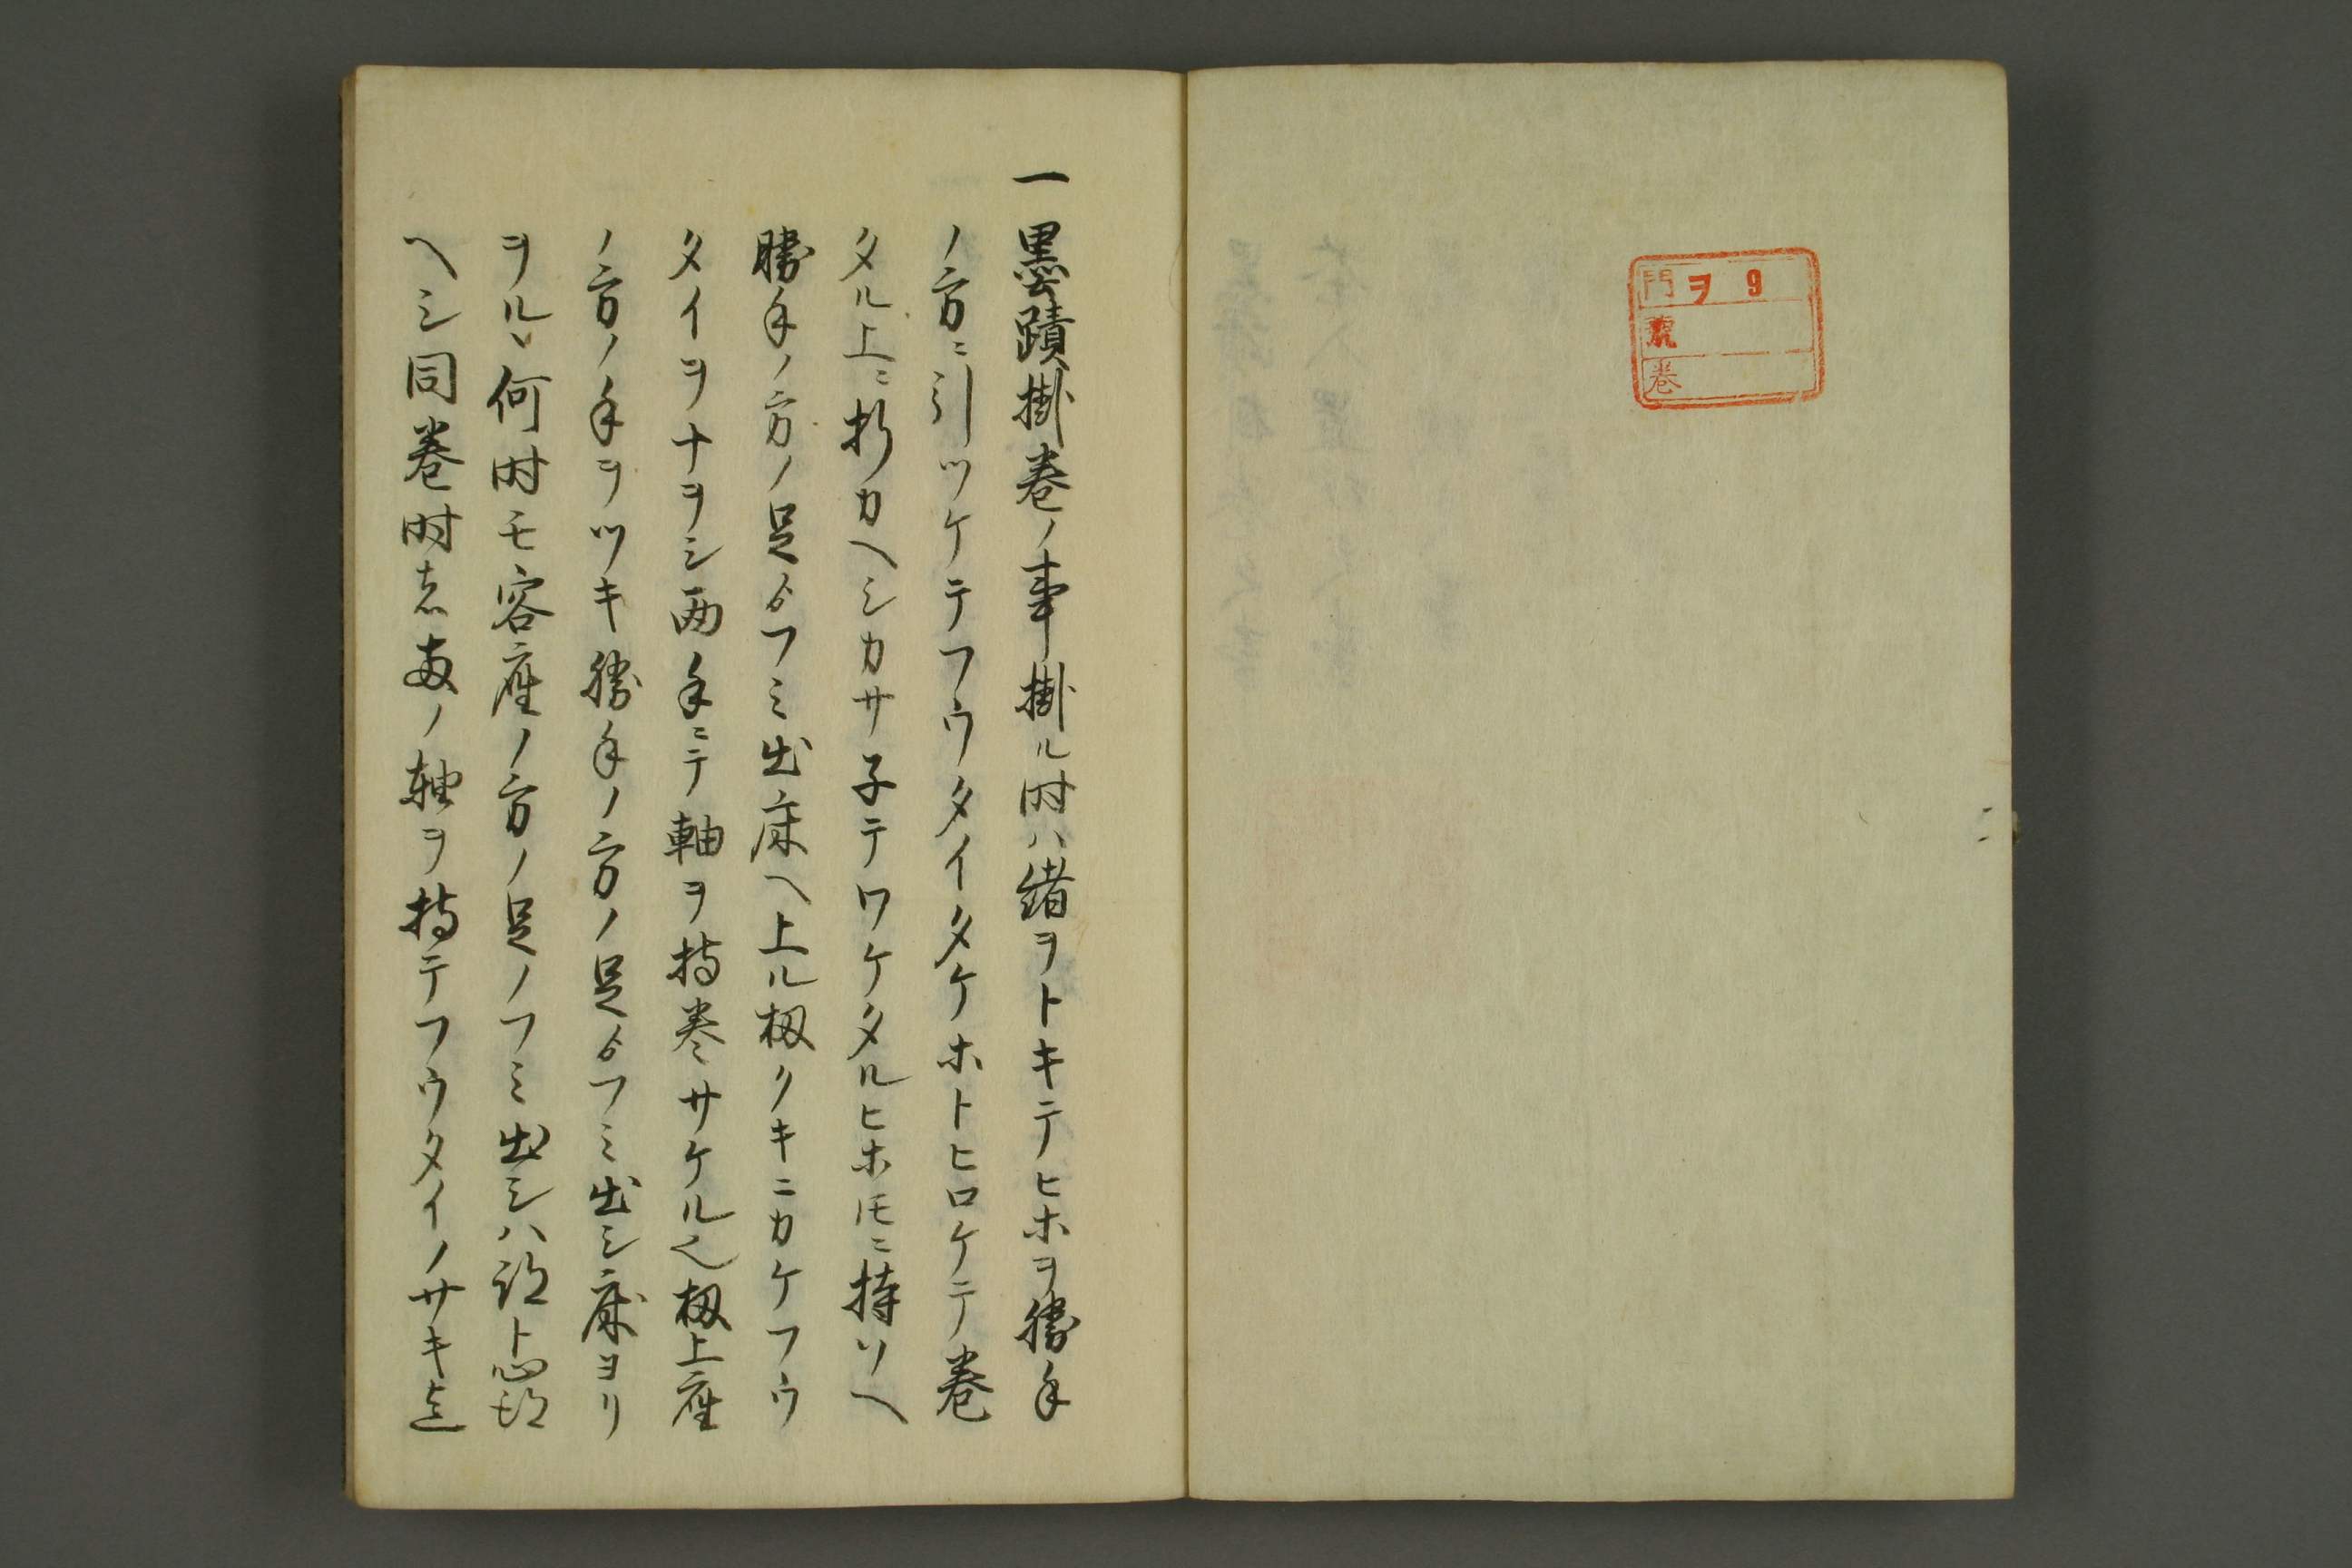 門ヲ 9
號
卷
一墨蹟掛巻ノ事掛ル时ハ緒ヲトキテヒホヲ勝手
ノ方ニ引ツケテフウタイタケホトヒロケテ巻
タル上ニ折カヘシカサ子テワケタルヒホ𪜈ニ持ソヘ
勝手ノ方ノ足ゟフミ出床ヘ上ル扨クキニカケフウ
タイヲナヲシ両手ニテ軸ヲ持巻サケル也扨上座
ノ方ノ手ヲツキ勝手ノ方ノ足ゟフミ出シ床ヨリ
ヲルヽ何时モ客座ノ方ノ足ノフミ出シハ
ヘシ同巻时ノ軸ヲ持テフウタイノサキ迄